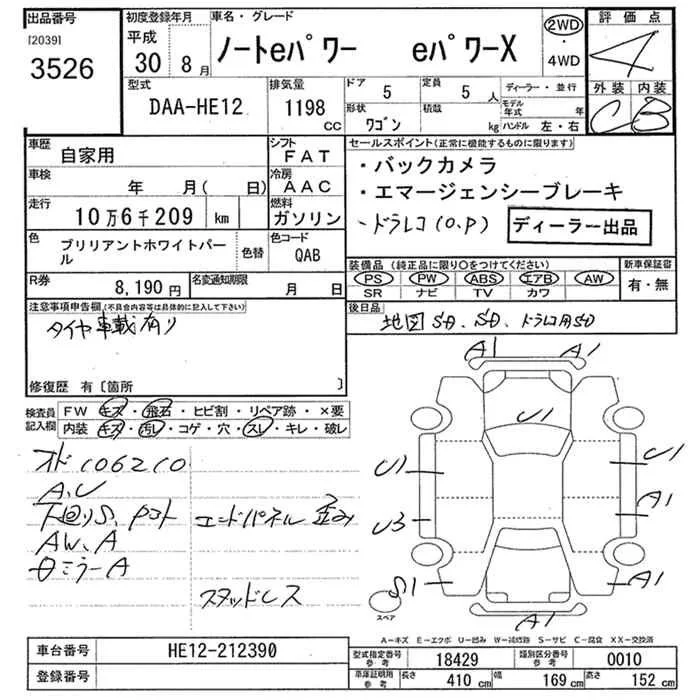 出品番号 初度登録年月 車名・グレード 2WD 評価点
[2039] 平成 ノートeパワー eパワーX ・ 4
3526 30 8月 4WD
型式 排気量 ドア 定員 ディーラー・並行 外装 内装
DAA-HE12 1198 cc 5 5人 モデル年式 年 C B
形状 積載 ハンドル 左・右
ワゴン kg
車歴 自家用 シフト FAT セールスポイント(正常に機能するものに限ります)
車検 年 月( 日) 冷房 AAC ・バックカメラ
・エマージェンシーブレーキ
走行 10万6千209 km 燃料 ガソリン -ドラレコ(O.P) ディーラー出品
色 ブリリアントホワイトパール 色替 色コード QAB
装備品(純正品に限り○をつけてください) 新車保証書
R券 8,190円 名変通知期限 月 日 PS・PW・ABS・エアB・AW 有・無
SR ナビ TV カワ
注意事項申告欄(不具合内容等は具体的に記入して下さい) 後日品 地図SD、SD、ドラレコ用SD
タイヤ車載有り
修復歴 有〔箇所 〕
検査員記入欄 FW キズ・飛石・ヒビ割・リペア跡・×要
内装 キズ・汚レ・コゲ・穴・スレ・キレ・破レ
オド106210
A,U
下回りS、Pコト エンドパネル歪み
AW、A
ミラーA
スタッドレス
A1 A1
U1
U1 U1
U3 A1
S1 A1
スペア
A1
A-キズ E-エクボ U-凹み W-補修跡 S-サビ C-腐食 XX-交換済
車台番号 HE12-212390 型式指定番号 参考 18429 類別区分番号 参考 0010
登録番号 車庫証明用 参考 長さ 410cm 幅 169cm 高さ 152cm